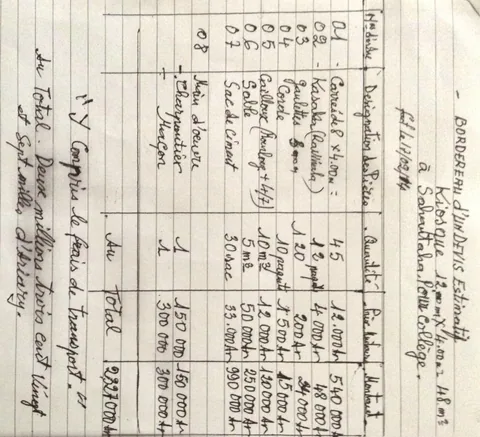 - BORDEREAU d'UN DEVIS Estimatif
Kiosque 12.00m x 4.00m = 48 m²
à Sahantaha Pour College.
fait le 17/02/14
N° d'ordre Désignation des Pièces Quantité Prix unitaire Montant
01 - 8 x 4.00m = 45 12.000 Ar 540 000 Ar
02 - Kasaka 12 paquet 4000 Ar 48 000 Ar
03 Gaulettes 120 200 Ar 24000 Ar
04 Corde 10 paquet 1500 Ar 15000 Ar
05 Cailloux 10 m³ 12000 Ar 120 000 Ar
06 Sable 5 m³ 50 000 Ar 250 000 Ar
07 Sac de ciment 30 sac 33.000 Ar 990 000 Ar
08 Main d'oeuvre
- Charpentier 1 150 000 150 000 Ar
- Maçon 1 300 000 300 000 Ar
Au Total 2327000 Ar
"Y Compris le frais de transport."
Au Total Deux millions trois cent Vingt
et Sept mille d'Ariary.